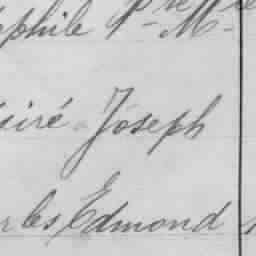 ophile Pre M
siré Joseph
rles Edmond